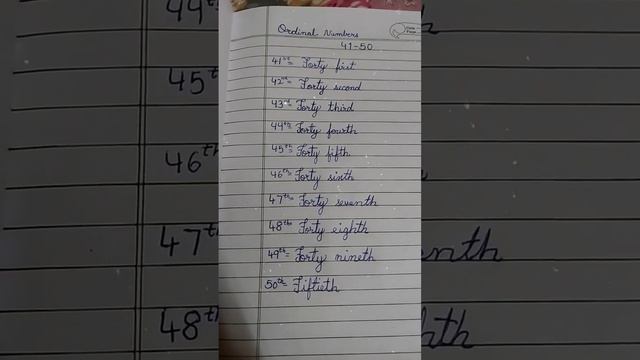 Ordinal Numbers
41-50
41st= Forty first
42nd= Forty second
43rd= Forty third
44th= Forty fourth
45th= Forty fifth
46th= Forty sixth
47th= Forty seventh
48th= Forty eighth
49th= Forty nineth
50th= Fiftieth
44th
45th
46th
47th
48th